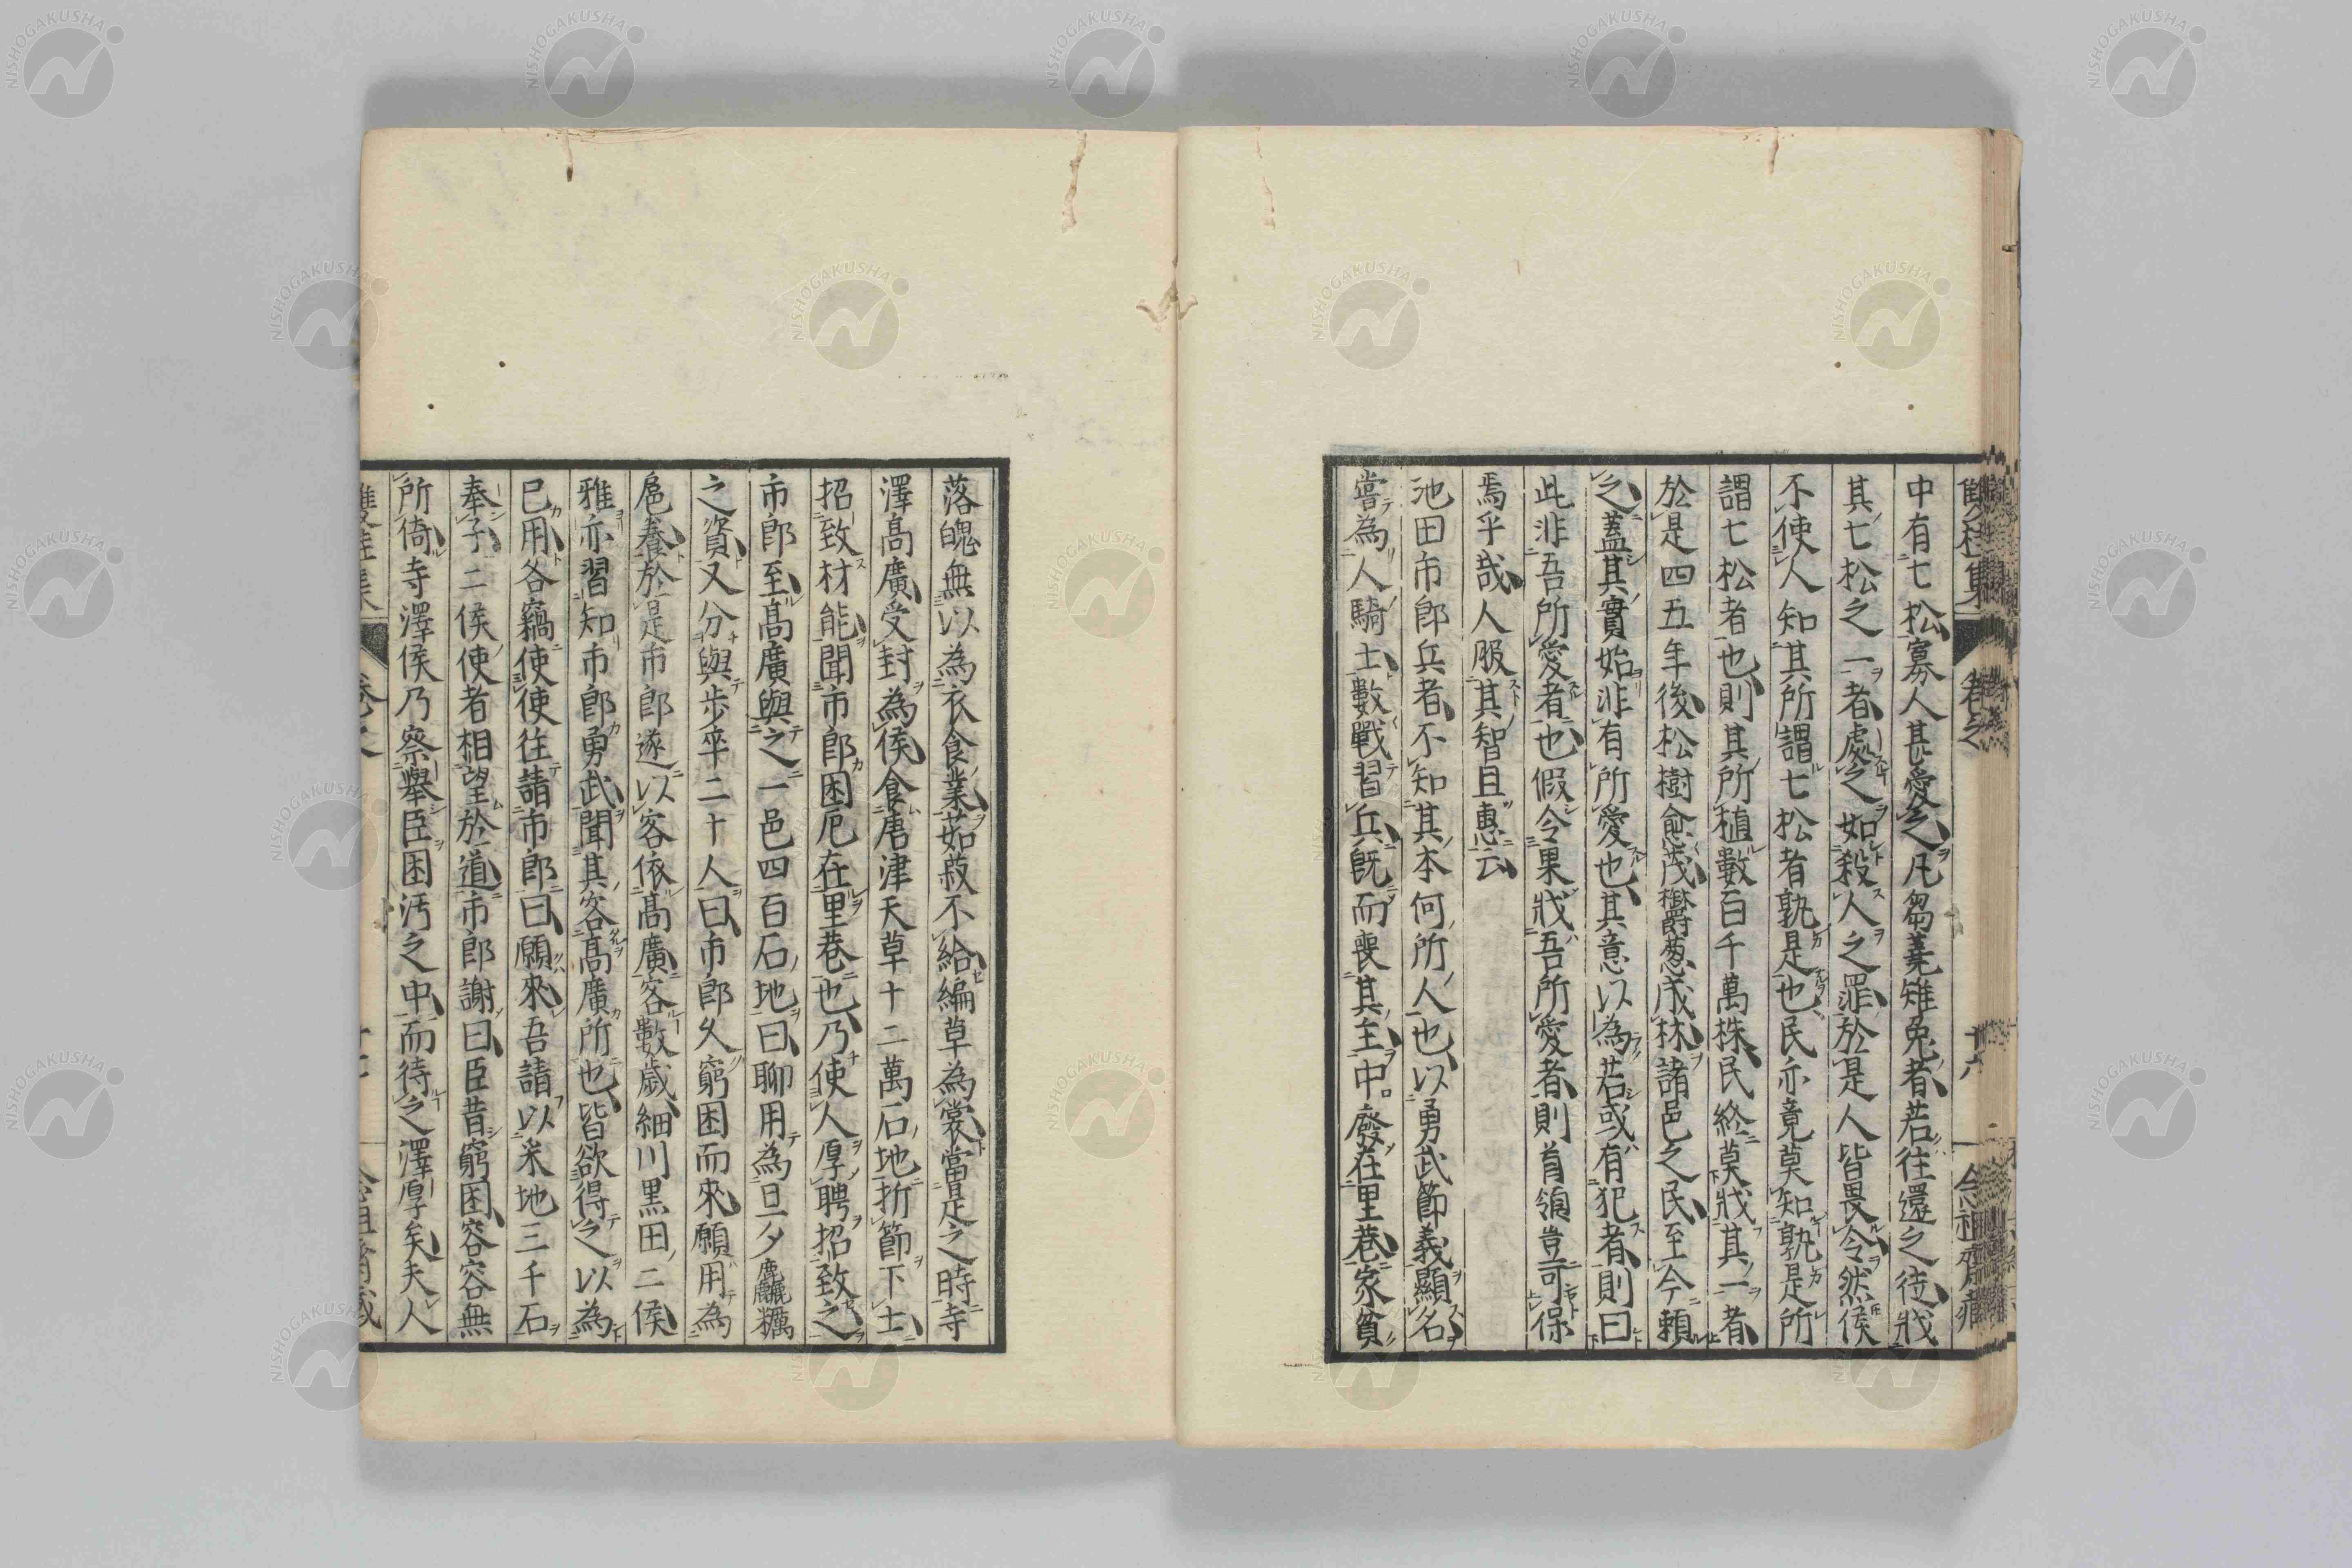 中有七松寡人甚愛之凡芻蕘雉兔者若往還之徒戕
其七松之一者處之如殺人之罪於是人皆畏令然侯
不使人知其所謂七松者孰是也民亦竟莫知孰是所
謂七松者也則其所植數百千萬株民終莫戕其一者
於是四五年後松樹愈茂欝葱成林諸邑之民至今賴
之蓋其實始非有所愛也其意以為若或有犯者則曰
此非吾所愛者也假令果戕吾所愛者則首領豈可保
焉乎哉人服其智且惠云
池田市郎兵者不知其本何所人也以勇武節義顯名
嘗為人騎士數戰習兵既而喪其主中廢在里巷家貧
落魄無以為衣食業茹菽不給編草為裳當是之時寺
澤高廣受封為侯食唐津天草十二萬石地折節下士
招致材能聞市郎困厄在里巷也乃使人厚聘招致之
市郎至高廣與之一邑四百石地曰聊用為旦夕麤糲
之資又分與步卒二十人曰市郎久窮困而來願用為
扈養於是市郎遂以客依高廣客數歲細川黑田二侯
雅亦習知市郎勇武聞其客高廣所也皆欲得之以為
已用各竊使使往請市郎曰願來吾請以釆地三千石
奉子二侯使者相望於道市郎謝曰臣昔窮困容容無
所倚寺澤侯乃察舉臣困汚之中而待之澤厚矣夫人
NISHOGAKUSHA